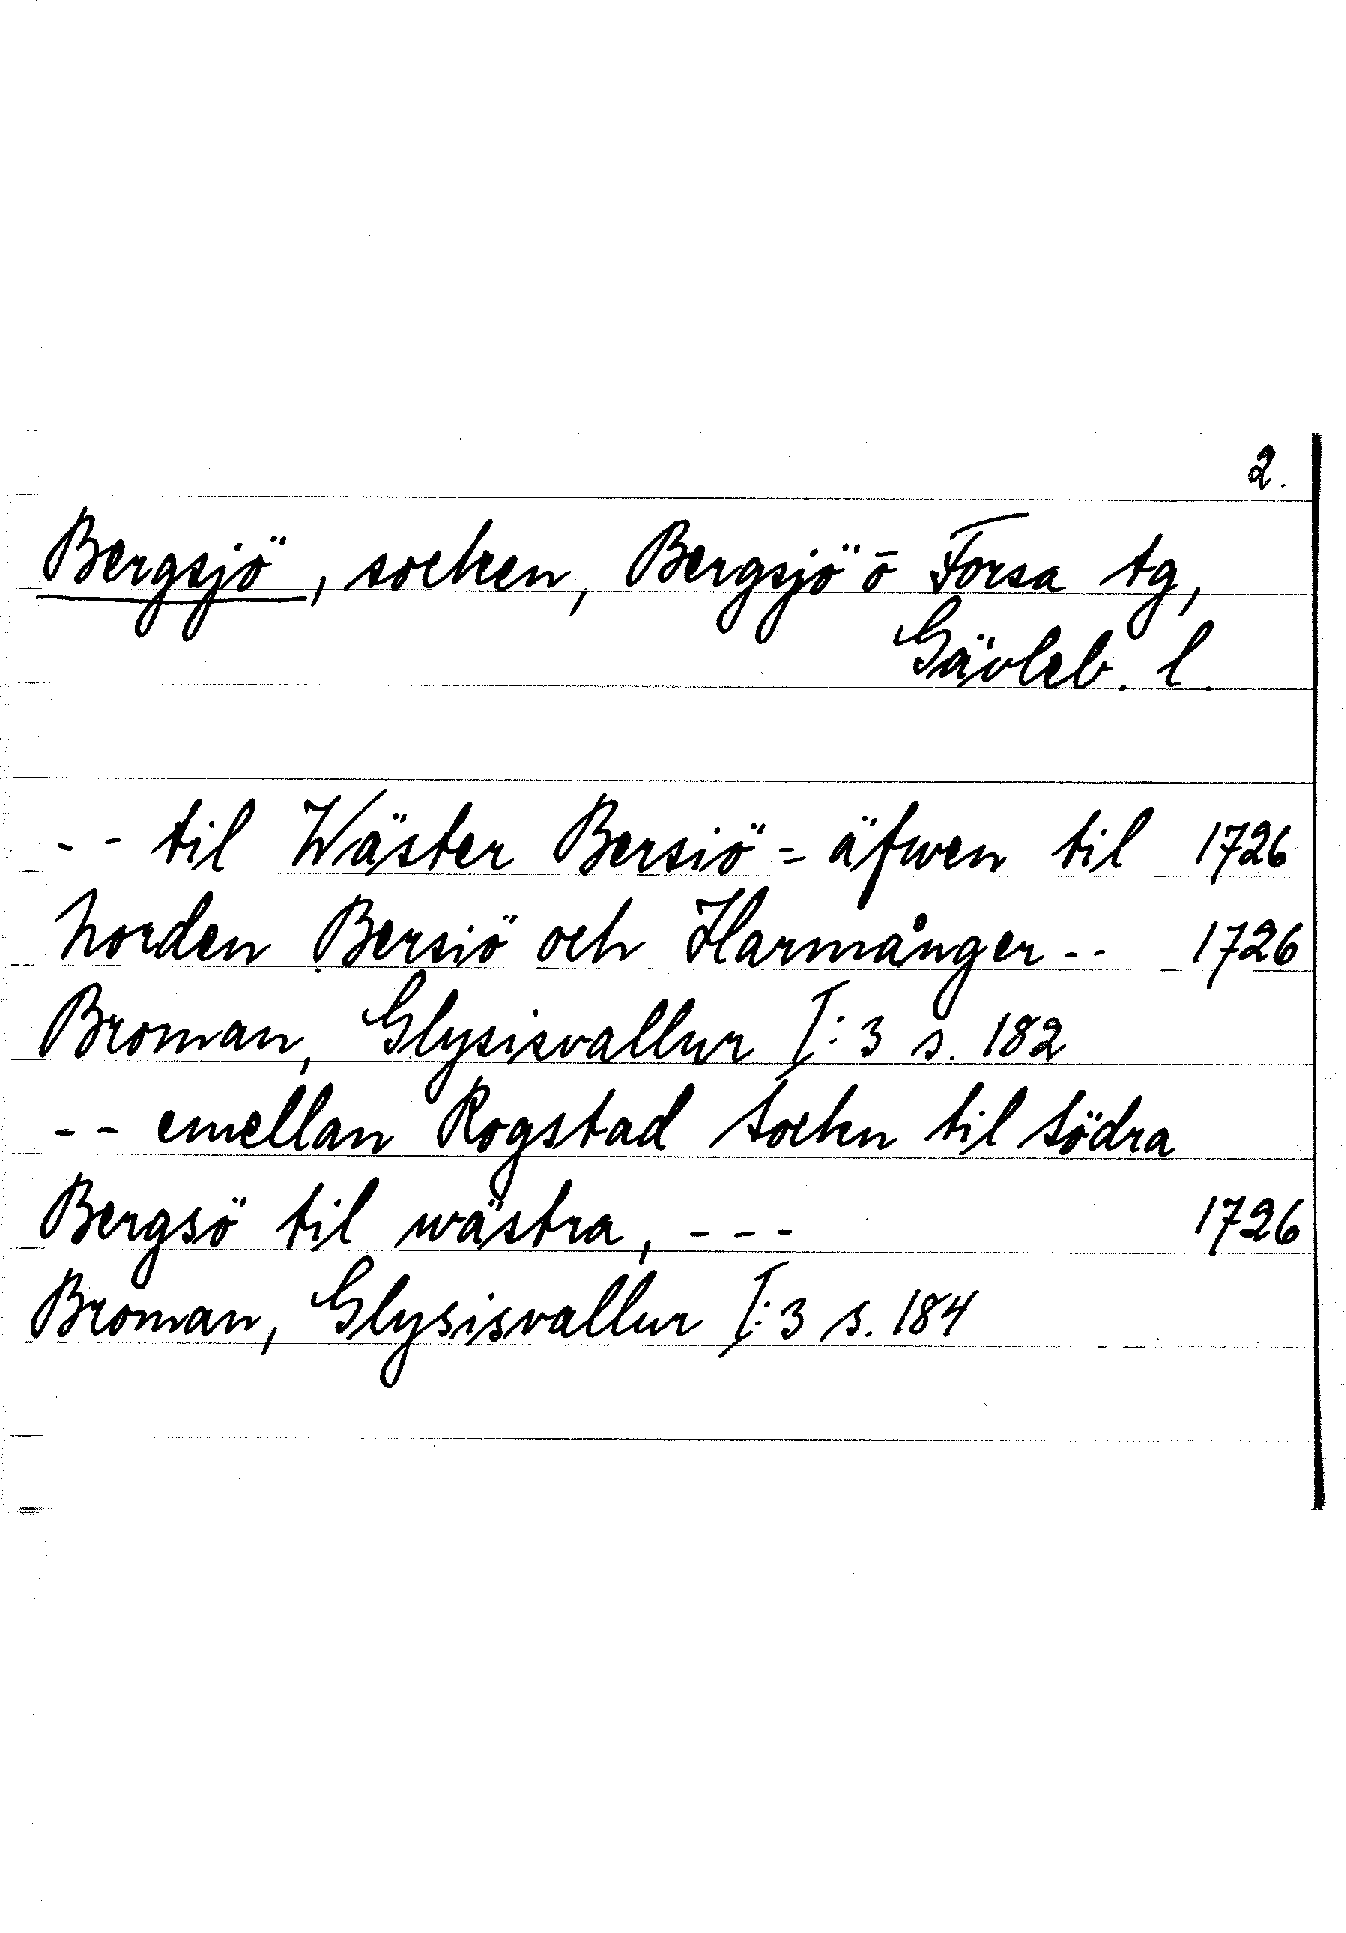 2.
Bergsjö, socken, Bergsjö o Forsa tg,
Gävleb. l.
-- til Wäster Bersiö = äfwen til 1726
Norden Bersiö och Harmånger -- 1726
Broman, Glysisvallur I:3 s. 182
-- emellan Rogstad Sockn til Södra
Bergsö til wästra, --- 1726
Broman, Glysisvallur I:3 s. 184